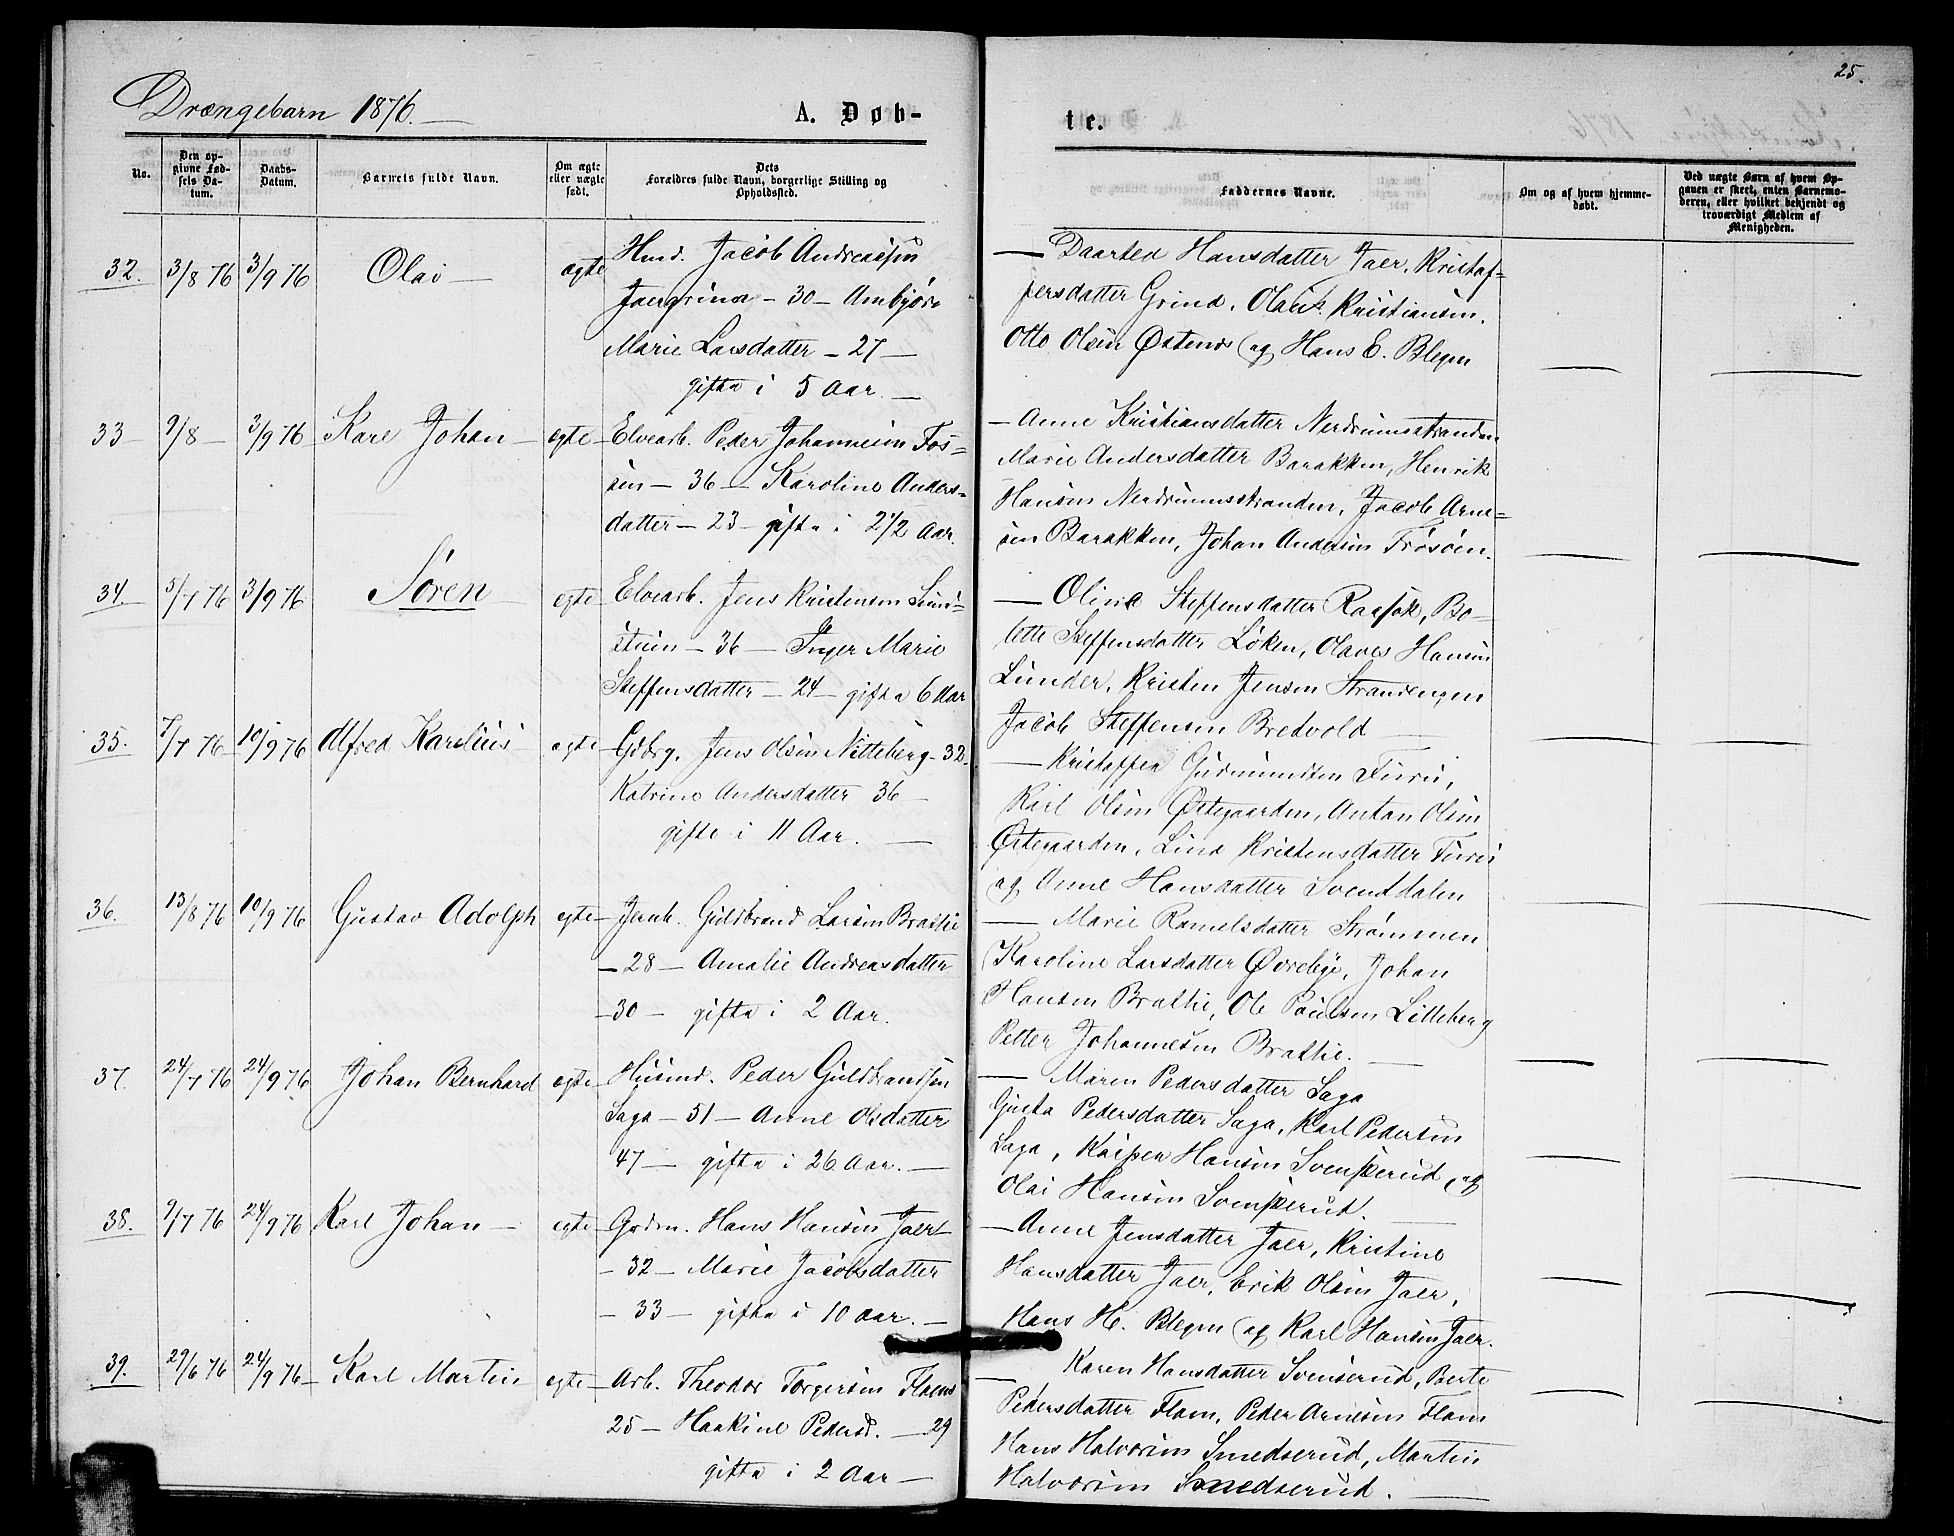 25.
Drængebarn 1876.
A. Døb-
te.
No.
Den op-
givne Fød-
sels Da-
tum.
Daabs-
Datum.
Barnets fulde Navn.
Om ægte
eller uægte
født.
Dets
Forældres fulde Navn, borgerlige Stilling og
Opholdssted.
Faddernes Navne.
Om og af hvem hjemme-
døbt.
Ved uægte Børn af hvem Op-
gaven er skeet, enten Barnemo-
deren, eller hvilket bekjendt og
troværdigt Medlem af
Menigheden.
32. 3/8 76 3/9 76 Olai — ægte
Husd. Jacob Andreassen
Jaergrina — 30 — Ambjør
Marie Larsdatter — 27 —
gifta i 5 Aar. —
— Daartea Hansdatter Jaer, Kristof-
persdatter Grina, Olaus Kristiansen,
Otto Olsen og Hans E. Blegen
33 9/8 — 3/9 76 Karl Johan — egte
Elvearb. Peder Johannesen Fos-
sen — 36 — Karoline Anders-
datter — 23 — gifta i 2 1/2 Aar.
— Anne Kristiansdatter Nerdrumsstranden
Marie Andersdatter Barakken, Henrik
Hansen Nerdrumsstranden, Jacob Arne-
sen Barakken, Johan Andersen
34. 5/7 76 3/9 76 Søren egte
Elvearb. Jens Kristensen
— 36 — Inger Marie
Steffensdatter — 24 — gifta 6 Aar
— Olina Steffensdatter Bo-
lette Steffensdatter Løken, Olaves Hansen
Lunder, Kristen Jensen Strandengen
Jacob Steffensen Bredvold —
35. 7/7 76 10/9 76 Alfred Karelius egte
Gdbrg. Jens Olsen Nitteberg — 32.
Katrine Andersdatter 36 —
gifte i 11 Aar. —
— Kristoffer Gudmundsen Furu,
Karl Olsen Østegaarden, Anton Olsen
Østegaarden, Lina Kristensdatter Furu
og Anne Hansdatter Svenddalen
36. 13/8 76 10/9 76 Gustav Adolph egte —
Jernb. Guldbrand Larsen Brathe
— 28 — Amalie Andreasdatter
— 30 — gifta i 2 Aar.
— Marie Ramelsdatter Strømmen
Karoline Larsdatter Johan
Hansen Brathe, Ole Paulsen Litteberg
Petter Johannesen Brathe. —
37. 24/7 76 24/9 76 Johan Bernhard egte —
Husmd. Peder Guldbrandsen
Saga — 51 — Anne Olsdatter
47 — gifta i 26 Aar. —
— Maren Pedersdatter Saga
Gusta Pedersdatter Saga, Karl Pedersen
Saga, Kasper Hansen Svenserud, og
Olai Hansen Svenserud.
38. 9/7 76 24/9 76 Karl Johan — egte —
Grdm. Hans Hansen Jaer
— 32 — Marie Jacobsdatter
— 33 — gifta i 10 aar. —
— Anne Jensdatter Jaer, Kristine
Hansdatter Jaer, Erik Olsen Jaer,
Hans H. Blegen og Karl Hansen Jaer.
39. 29/6 76 24/9 76 — Karl Martin egte —
Arb. Theodor Torgersen Flaen
25 — Haakine Pedersd. — 29
gifta i 2 Aar —
— Karen Hansdatter Svenserud, Berte
Pedersdatter Flom, Peder Arnesen Flom
Hans Halvorsen Smedserud, Martin
Halvorsen Smedserud. —